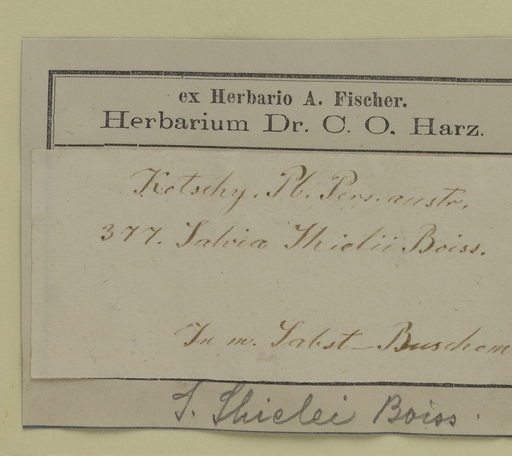 ex Herbario A. Fischer.
Herbarium Dr. C. O. Harz.
Kotschy. Pl. Pers. austr.
377. Salvia Thielii Boiss.
In m. Sabst-Buschom
S. Shielei Boiss.